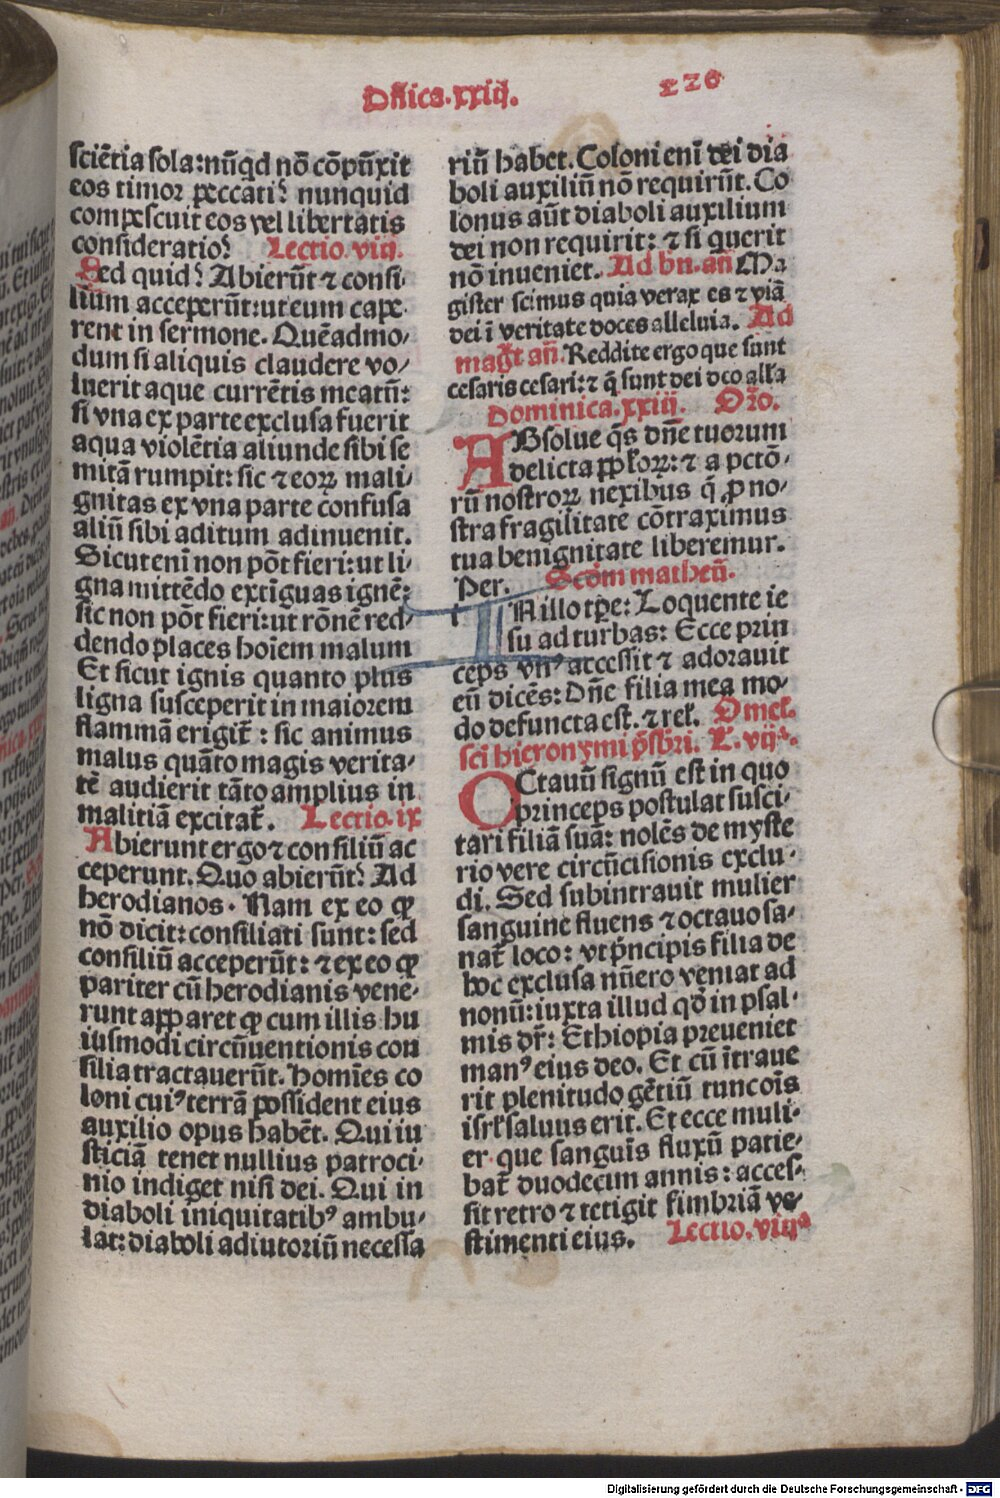 Dñica.xxiij. 226
sciētia sola:nūqd nō cōpūxit
eos timor peccati? nunquid
compescuit eos vel libertatis
consideratio? Lectio.viij.
Sed quid? Abierūt ⁊ consi-
lium acceperūt:ut eum cape-
rent in sermone. Quēadmo-
dum si aliquis claudere vo-
luerit aque currētis meatū:
si vna ex parte exclusa fuerit
aqua violētia aliunde sibi se
mitā rumpit: sic ⁊ eoꝝ mali-
gnitas ex vna parte confusa
aliū sibi aditum adinuenit.
Sicut enī non pōt fieri:ut li-
gna mittēdo extiguas ignē:
sic non pōt fieri:ut rōnē red-
dendo places hoīem malum
Et sicut ignis quanto plus
ligna susceperit in maiorem
flammā erigit̄ : sic animus
malus quāto magis verita-
tē audierit tāto amplius in
malitiā excitat̄. Lectio.ix
Abierunt ergo ⁊ consiliū ac
ceperunt. Quo abierūt? Ad
herodianos. Nam ex eo ꝙ
nō dicit: consiliati sunt: sed
consiliū acceperūt: ⁊ ex eo ꝙ
pariter cū herodianis vene-
runt apparet ꝙ cum illis hu
iusmodi circūuentionis con
silia tractauerūt. Homīes co
loni cuiꝰ terrā possident eius
auxilio opus habēt. Qui iu
sticiā tenet nullius patroci-
nio indiget nisi dei. Qui in
diaboli iniquitatibꝰ ambu-
lat: diaboli adiutoriū necessa
riū habet. Coloni enī dei dia
boli auxiliū nō requirūt. Co
lonus aūt diaboli auxilium
dei non requirit: ⁊ si querit
nō inueniet. Ad bn. añ Ma
gister scimus quia verax es ⁊ viā
dei ī veritate doces alleluia. Ad
magt̄ añ. Reddite ergo que sunt
cesaris cesari: ⁊ q̄ sunt dei deo alľa
Dominica.xxiij. Orō.
ABsolue qs dñe tuorum
delicta ꝓpľoꝝ: ⁊ a pctō-
rū nostroꝝ nexibus q̄ ꝓ no-
stra fragilitate cōtraximus
tua benignitate liberemur.
Per. Scdm matheū.
IN illo tpe: Loquente ie
su ad turbas: Ecce prin
ceps vnꝰ accessit ⁊ adorauit
eū dicēs: Dñe filia mea mo-
do defuncta est. ⁊ reľ. Omeľ.
sci hieronymi p̄sbri. L. vijª.
OCtauū signū est in quo
princeps postulat susci-
tari filiā suā: nolēs de myste
rio vere circūcisionis exclu-
di. Sed subintrauit mulier
sanguine fluens ⁊ octauo sa-
nat̄ loco: vt p̄ncipis filia de
hoc exclusa nūero veniat ad
nonū: iuxta illud qd̄ in psal-
mis dr̄: Ethiopia preueniet
manꝰ eius deo. Et cū ītraue
rit plenitudo gētiū tunc oīs
isrľ saluus erit. Et ecce muli-
er que sanguīs fluxū patie-
bat̄ duodecim annis: acces-
sit retro ⁊ tetigit fimbriā ve-
stimenti eius. Lectio.viijª
Digitalisierung gefördert durch die Deutsche Forschungsgemeinschaft - DFG